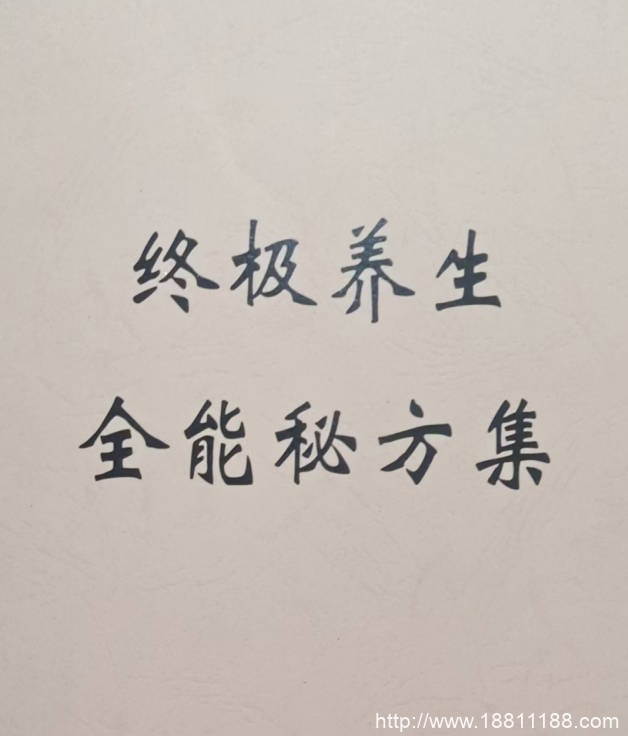 终极养生
全能秘方集
http://www.18811188.com